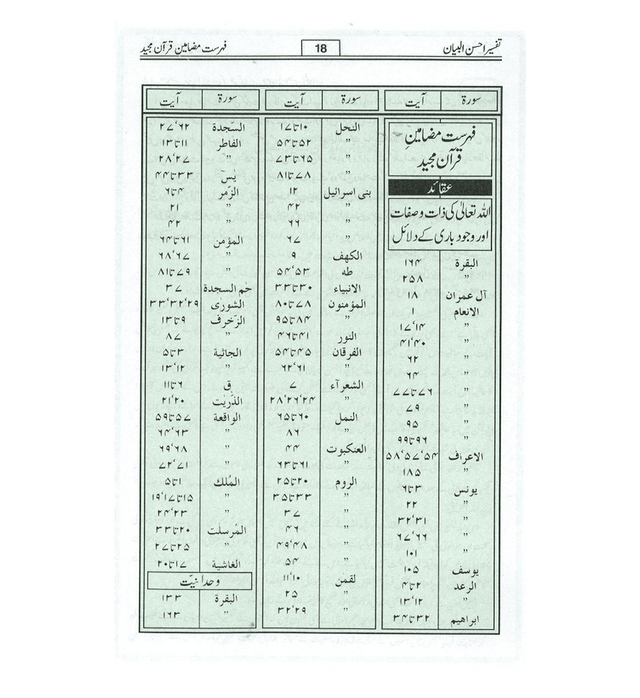 تفسیر احسن البیان
18
فہرست مضامین قرآن مجید
سورۃ آیت
فہرست مضامینِ
قرآن مجید
عقائد
اللہ تعالیٰ کی ذات و صفات
اور وجود باری کے دلائل
البقرۃ ۱۶۴
” ۲۵۸
آل عمران ۱۸
الانعام ۱
” ۱۷٬۱۴
” ۴۱٬۴۰
” ۶۲
” ۶۴
” ۷۶ تا ۷۷
” ۷۹
” ۹۵
” ۹۶ تا ۹۹
الاعراف ۵۸٬۵۷٬۵۴
” ۱۸۵
یونس ۳ تا ۶
” ۲۲
” ۳۲٬۳۱
” ۶۷٬۶۶
” ۱۰۱
یوسف ۱۰۵
الرعد ۲ تا ۴
” ۱۳٬۱۲
ابراھیم ۳۲ تا ۳۴
سورۃ آیت
النحل ۱۰ تا ۱۷
” ۵۲ تا ۵۴
” ۶۵ تا ۷۳
” ۷۸ تا ۸۱
بنی اسرائیل ۱۲
” ۴۲
” ۶۶
” ۶۷
الکھف ۹
طہ ۵۴٬۵۳
الانبیاء ۳۰ تا ۳۳
المؤمنون ۷۸ تا ۸۰
” ۸۴ تا ۹۵
النور ۴۱ تا ۴۶
الفرقان ۴۵ تا ۵۴
” ۶۲٬۶۱
الشعرآء ۷
” ۲۸٬۲۶٬۲۴
النمل ۶۰ تا ۶۵
” ۸۶
العنکبوت ۴۴
” ۶۱ تا ۶۳
الروم ۲۰ تا ۲۵
” ۳۳ تا ۳۵
” ۳۷
” ۴۶
” ۴۹٬۴۸
” ۵۴
لقمن ۱۱٬۱۰
” ۲۵
” ۳۲٬۲۹
سورۃ آیت
السّجدۃ ۲۷٬۶۲
الفاطر ۱۱ تا ۱۳
” ۲۸٬۲۷
یٰسٓ ۳۳ تا ۴۴
الزّمر ۴ تا ۶
” ۲۱
” ۴۲
المؤمن ۶۱ تا ۶۴
” ۶۸٬۶۷
” ۷۹ تا ۸۱
حٰم السجدۃ ۳۷
الشورٰی ۳۳٬۳۲٬۲۹
الزّخرف ۹ تا ۱۳
” ۸۷
الجاثیۃ ۳ تا ۵
” ۱۳٬۱۲
قٓ ۶ تا ۱۱
الذّریت ۲۱٬۲۰
الواقعۃ ۵۷ تا ۵۹
” ۶۴٬۶۳
” ۶۹٬۶۸
” ۷۲٬۷۱
المُلک ۱ تا ۵
” ۱۵ تا ۱۹٬۱۷
” ۲۴٬۲۳
المُرسلٰت ۲۰ تا ۳۳
” ۲۵ تا ۲۷
الغاشیۃ ۱۷ تا ۲۰
وحدانیّت
البقرۃ ۱۳۳
” ۱۶۳